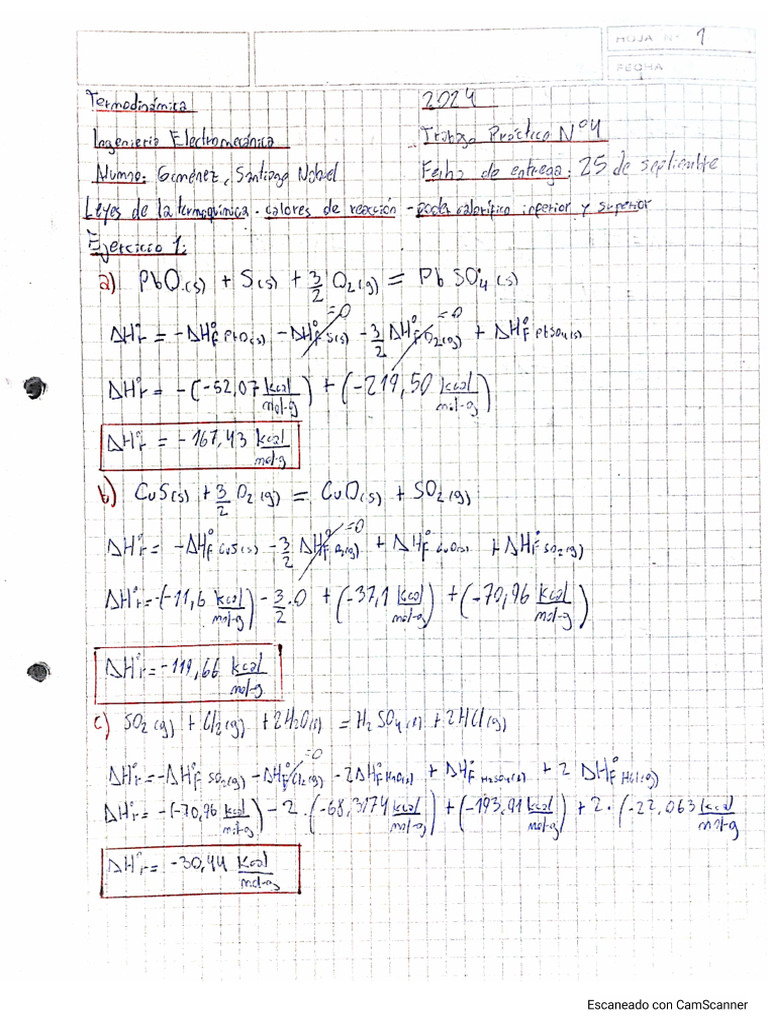 HOJA N° 1
FECHA
Termodinámica 2024
Ingeniería Electromecánica Trabajo Práctico N°4
Alumno: Giménez, Santiago Nobel Fecha de entrega: 25 de septiembre
Leyes de la termoquímica - calores de reacción - poder calorífico inferior y superior
Ejercicio 1:
a) PbO(s) + S(s) + 3/2 O2(g) = PbSO4(s)
=0 =0
ΔH°r = -ΔH°f PbO(s) - ΔH°f S(s) - 3/2 ΔH°f O2(g) + ΔH°f PbSO4(s)
ΔH°r = -(-52,07 kcal/mol-g) + (-219,50 kcal/mol-g)
ΔH°r = -167,43 kcal/mol-g
b) CuS(s) + 3/2 O2(g) = CuO(s) + SO2(g)
=0
ΔH°r = -ΔH°f CuS(s) - 3/2 ΔH°f O2(g) + ΔH°f CuO(s) + ΔH°f SO2(g)
ΔH°r = -(-11,6 kcal/mol-g) - 3/2 . 0 + (-37,1 kcal/mol-g) + (-70,96 kcal/mol-g)
ΔH°r = -119,66 kcal/mol-g
c) SO2(g) + Cl2(g) + 2H2O(l) = H2SO4(l) + 2HCl(g)
=0
ΔH°r = -ΔH°f SO2(g) - ΔH°f Cl2(g) - 2ΔH°f H2O(l) + ΔH°f H2SO4(l) + 2 ΔH°f HCl(g)
ΔH°r = -(-70,96 kcal/mol-g) - 2 . (-68,3174 kcal/mol-g) + (-193,91 kcal/mol-g) + 2 . (-22,063 kcal/mol-g)
ΔH°r = -30,44 kcal/mol-g
Escaneado con CamScanner